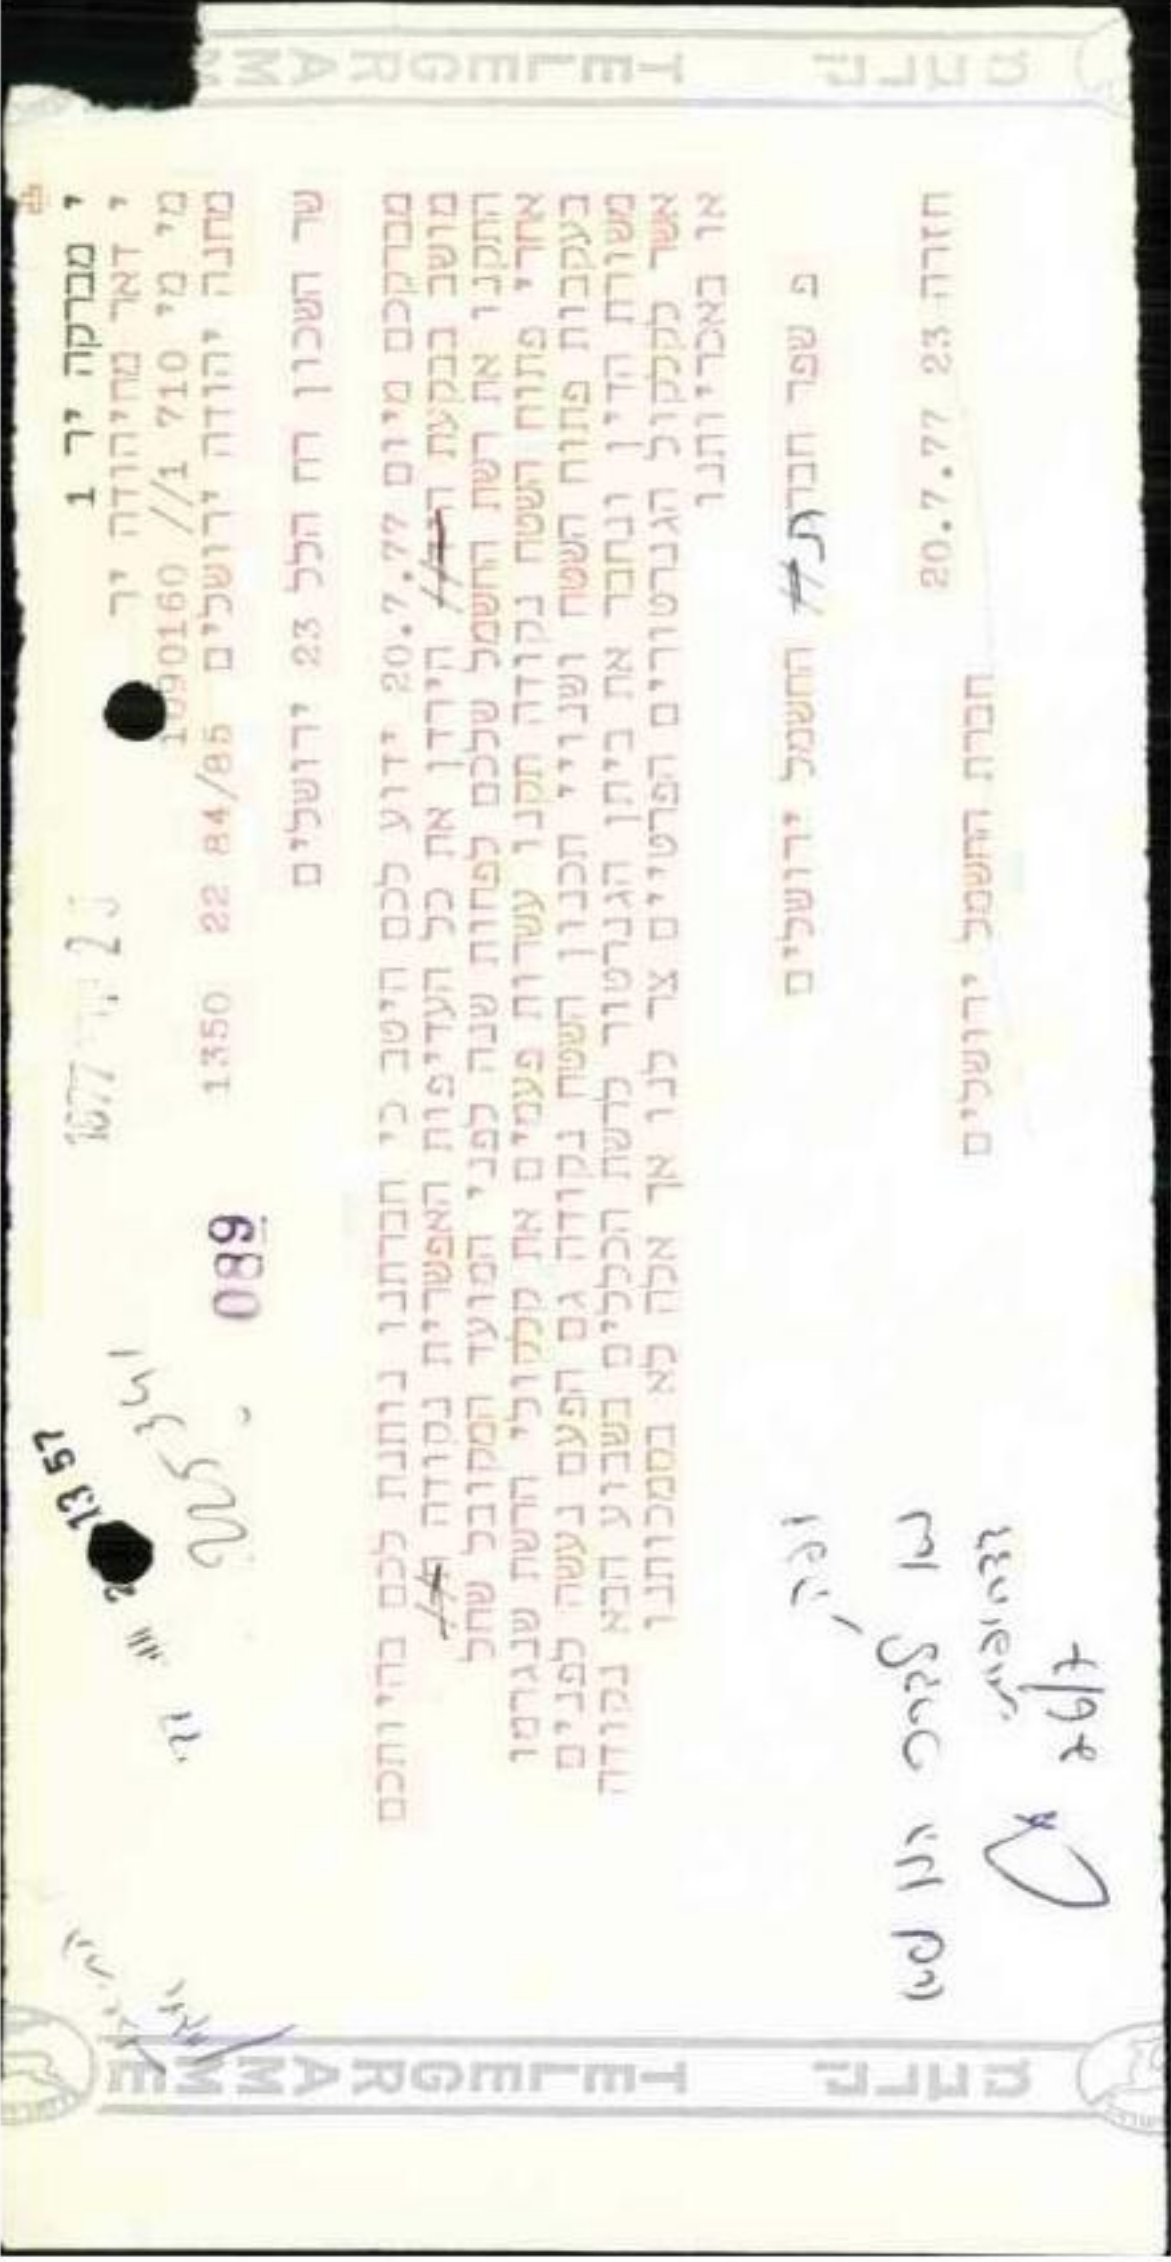 TELEGRAMM מברק
י מברקה יר 1
י דאר מחיהודה יר
מי מי 710 1// 1090160
מחנה יהודה ירושלים 22 84/85 1350
089
13 57
שר השכון רח הלל 23 ירושלים
מברקכם מיום 20.7.77 ידוע לכם היטב כי חברתנו נותנת לכם בהיותכם
מושב בבקעת הירדן את כל העדיפות האפשרית נקודה
התקנו את רשת החשמל שלכם לפחות שנה לפני המועד המקובל שחל
אחרי פתוח השטח נקודה תקנו עשרות פעמים את קלקולי הרשת שנגרמו
בעקבות פתוח השטח ושנויי תכנון השטח נקודה גם הפעם נעשה לפנים
משורת הדין ונחבר את ביתן הגנרטור לרשת הכללים בשבוע הבא נקודה
אשר לקלקול הגנרטורים הפרטיים צר לנו אך אלה לא בסמכותנו
או באכריותנו
פ שפר חברת// החשמל ירושלים
חזרה 23 20.7.77
חברת החשמל ירושלים
TELEGRAMME מברק